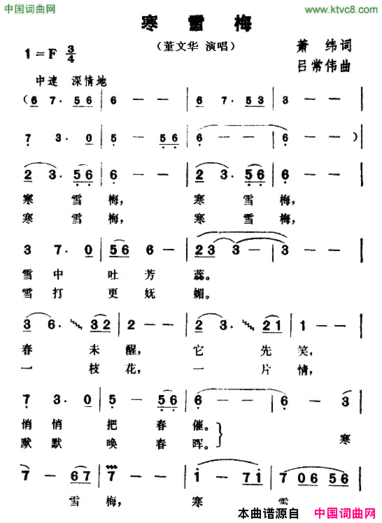 中国词曲网
www.ktvc8.com
寒雪梅
(董文华 演唱)
萧 纬词
吕常伟曲
1=F 3/4
中速 深情地
(6 7· 56 | 6 — — | 6 7· 53 | 6 — — |
7 3· 0 | 5 — 56 | 6 — — | 6 — —) |
2 3· 56 | 6 — — | 2 3· 56 | 6 — — |
寒 雪 梅, 寒 雪 梅,
寒 雪 梅, 寒 雪 梅,
3 7· 0 | 5 56 0 | 2 3 3 — | 3 — — |
雪 中 吐 芳 蕊。
雪 打 更 妩 媚。
3 6· 32 | 2 — — | 1 3· 21 | 1 — — |
春 未 醒, 它 先 笑,
一 枝 花, 一 片 情,
7 3· 0 | 5 — 56 | 6 — — | 6 — 3 |
悄 悄 把 春 催。
默 默 唤 春 晖。 寒
7 — 67 | 7 — — | 1 — 71 | 7 06 56 |
雪 梅, 寒 雪
本曲谱源自 中国词曲网